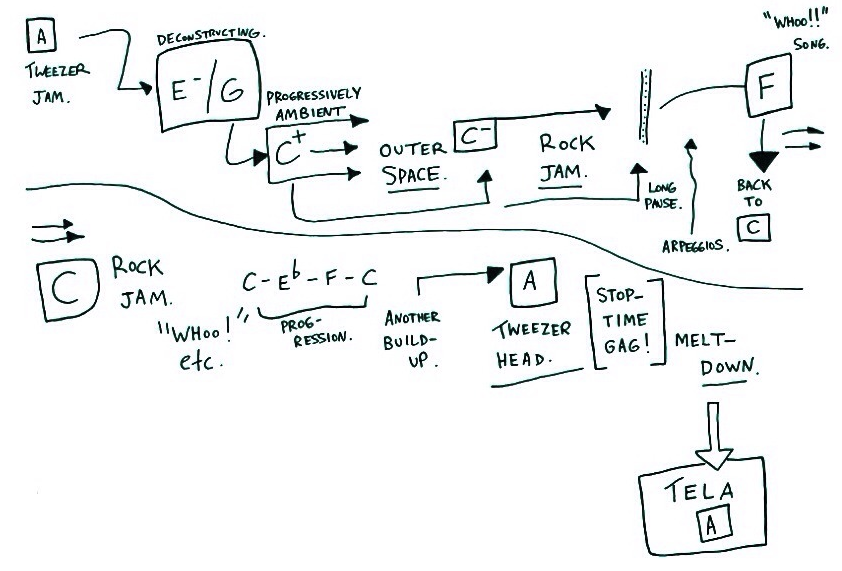 A
TWEEZER
JAM.
DECONSTRUCTING.
E-/G
PROGRESSIVELY
AMBIENT
C+
OUTER
SPACE.
C-
ROCK
JAM.
LONG
PAUSE.
ARPEGGIOS.
"WHOO!!"
SONG.
F
BACK
TO
C
C
ROCK
JAM.
"WHOO!"
etc.
C-Eb-F-C
PROG-
RESSION.
ANOTHER
BUILD-
UP.
A
TWEEZER
HEAD.
STOP-
TIME
GAG!
MELT-
DOWN.
TELA
A